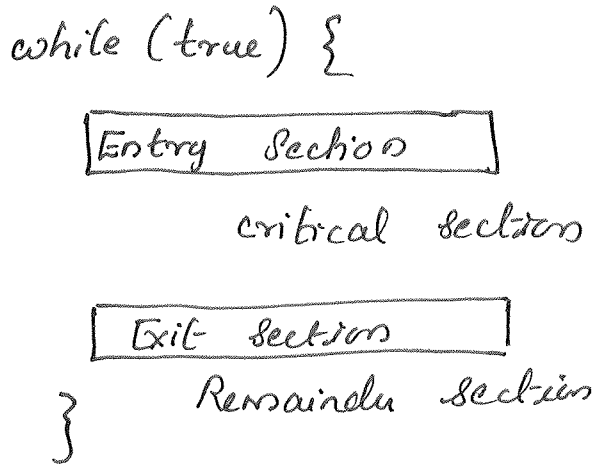 while (true) {
Entry Section
critical section
Exit section
Remainder section
}